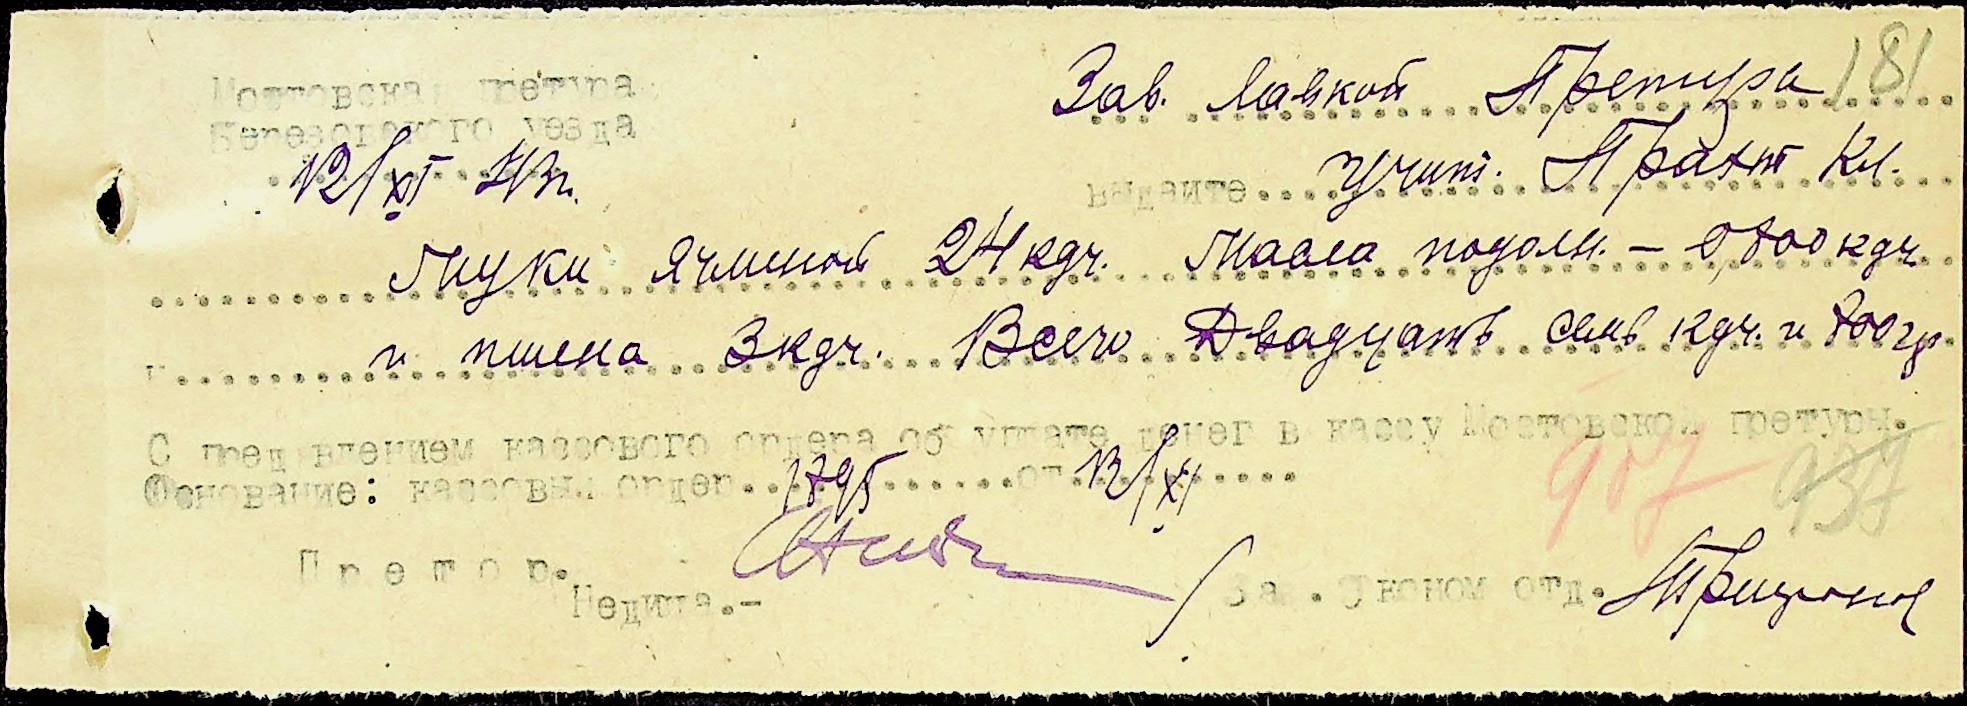 181
Мостовская претура Зав. Лавкой Претура
Березовского уезда
12/XI 43г. выдайте учит. Кл.
Муки ячменой 24 кгр. Масла подолн. – 0,800 кгр.
и пшена 3 кгр. Всего Двадцать семь кгр. и 800 гр.
С пред влением кассового ордера об уплате денег в кассу Мостовской претуры.
Основание: кассовый ордер 1895 от 12/XI
907 937
Претор.
Недица.- Зав. Эконом отд.